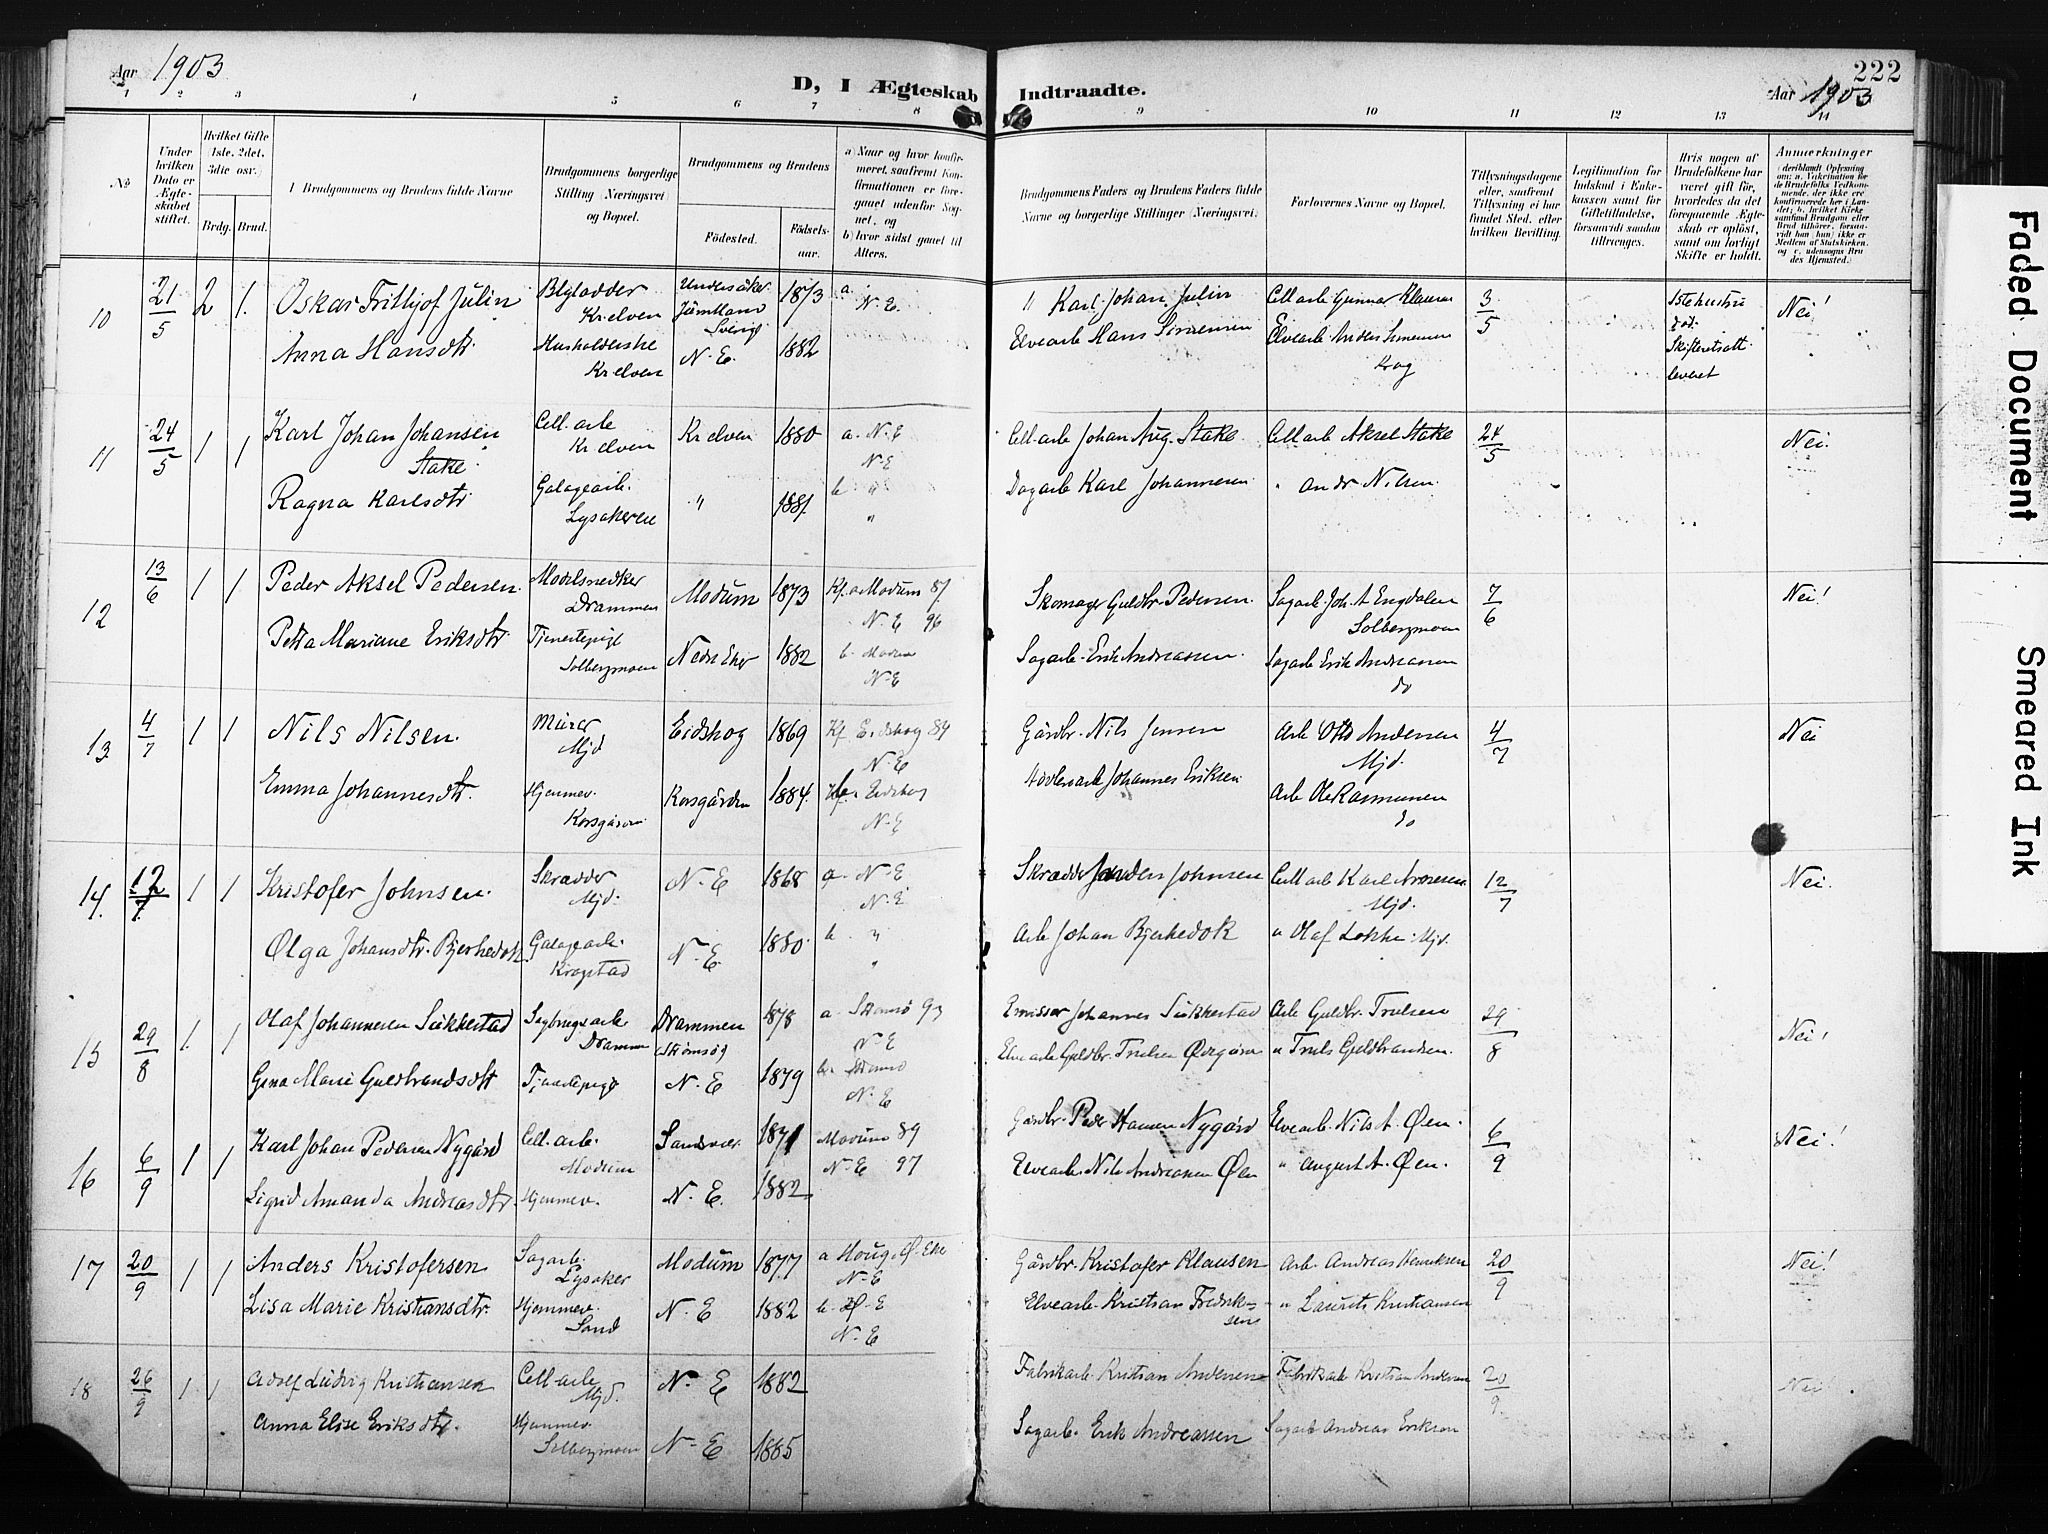 Aar 1903
D, I Ægteskab Indtraadte.
Aar 1903
222
1 2 3 4 5 6 7 8 9 10 11 12 13 14
No
Under hvilken Dato er Ægteskabet stiftet.
Hvilket Gifte (1ste, 2det, 3die osv.)
Brdg. Brud.
Brudgommens og Brudens fulde Navne
Brudgommens borgerlige Stilling (Næringsvei) og Bopæl.
Brudgommens og Brudens
Fødested.
Fødselsaar.
a) Naar og hvor konfirmeret, saafremt Konfirmationen er foregaaet udenfor Sognet, og
b) hvor sidst gaaet til Alters.
Brudgommens Faders og Brudens Faders fulde Navne og borgerlige Stillinger (Næringsvei.)
Forlovernes Navne og Bopæl.
Tillysningsdagene eller, saafremt Tillysning ei har fundet Sted, efter hvilken Bevilling.
Legitimation for Indskud i Enkekassen samt for Giftetilladelse, forsaavidt saadan tiltrænges.
Hvis nogen af Brudefolkene har været gift før, hvorledes da det foregaaende Ægteskab er opløst, samt om lovligt Skifte er holdt.
Anmærkninger
10 21/5 2 1. Oskar Frithjof Julin Kr.elven Jämtland Sverige 1873 a N.E. Karl Johan Julin Cell.arb. Gunnar 3/5 1ste hustru død. Nei!
Anna Hansdtr. Husholderske Kr.elven N.E. 1882 Elvearb. Hans Simensen Elvearb. Anders Simensen Krog
11 24/5 1 1 Karl Johan Johansen Stake. Cell.arb. Kr.elven Kr.elven 1880 a. N.E N.E Cell.arb. Johan Aug. Stake. Cell.arb. Aksel Stake 24/5 Nei.
Ragna Karlsdtr. Lysakeren " 1881. b " " Dagarb. Karl Johannesen " Andr. Nilsen
12 13/6 1 1 Peder Aksel Pedersen. Modelsnedker Drammen Modum 1873 Kf. a Modum 87 N.E 96 Skomager Guldbr. Pedersen. Sagarb. Joh. A. Engdalen Solbergmoen 7/6 Nei!
Petra Mariane Eriksdtr. Tjenestepige Solbergmoen Nedre Eker 1882 b. Modum N.E Sagarb. Erik Andreassen. Sagarb. Erik Andreassen do
13. 4/7 1 1 Nils Nilsen. Murer Mjd. Eidskog 1869 Kf. Eidskog 84 N.E Gårdbr. Nils Jensen Arb. Otto Andersen Mjd. 4/7 Nei
Emma Johannesdtr. Hjemmev. Korsgården Korsgården 1884. Eidskog N.E Johannes Eriksen Arb. Ole Rasmussen do
14. 12/7 1 1 Kristofer Johnsen. Skrædder Mjd. N.E 1868 a. N.E N.E Skrædder Anders Johnsen Cell.arb. Karl Mjd. 12/7 Nei.
Olga Johansdtr. Bjerkedok Krogstad N.E. 1880. b " " Arb. Johan Bjerkedok " Olaf Løkke Mjd.
15 29/8 1 1 Olaf Johannesen Sukkestad Sagbrugsarb. Drammen Drammen Strømsø 1878 a. Strømsø 93 N.E Emissær Johannes Sukkestad Arb. Guldbr. Trulsen 29/8 Nei!
Gina Marie Guldbrandsdtr. Tjenestepige N.E 1879 b. Strømsø N.E Elvearb. Guldbr. Trulsen " Truls Guldbrandsen.
16 6/9 1 1 Karl Johan Pedersen Nygård Cell.arb. Modum Sandsvær 1871 Modum 89 N.E 97 Gårdbr. Peder Hansen Nygård Elvearb. Nils A. Øen. 6/9 Nei!
Sigrid Amanda Andreasdtr. Hjemmev. N.E. 1882 Elvearb. Nils Andreassen Øen " August A. Øen.
17 20/9 1 1 Anders Kristofersen Sagarb. Lysaker Modum 1877 a Houg. Ø. Eker N.E Gårdbr. Kristofer Klausen Arb. Andreas Henriksen 20/9 Nei!
Lisa Marie Kristiansdtr. Hjemmev. Sand N.E 1882 b. N.E Elvearb. Kristian Fredriksen " Laurits Kristiansen
18 26/9 1 1 Adolf Ludvig Kristiansen Cell.arb. Mjd. N.E 1882 Fabrikarb. Kristian Andersen Fabrikarb. Kristian Andersen 20/9 Nei
Anna Elise Eriksdtr. Hjemmev. Solbergmoen N.E 1885 Sagarb. Erik Andreassen Sagarb. Andreas Eriksen
Faded Document
Smeared Ink